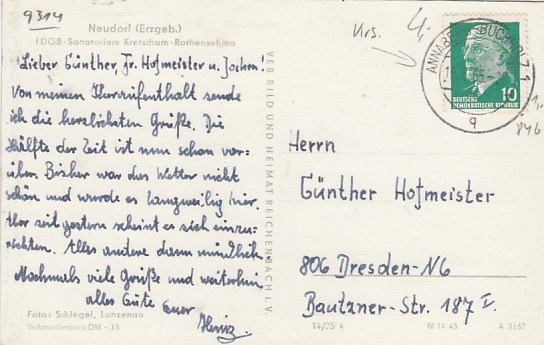 9314
Neudorf (Erzgeb.)
FDGB-Sanatorium Kretscham-Rothensehma
Lieber Günther, Fr. Hofmeister u. Jochen!
Von meinem Kuraufenthalt sende
ich die herzlichsten Grüße. Die
Hälfte der Zeit ist nun schon vor-
über. Bisher war das Wetter nicht
schön und wurde es langweilig hier.
Aber seit gestern scheint es sich einzu-
richten. Alles andere dann mündlich.
Nochmals viele Grüße und weiterhin
alles Gute Euer
Heinz
Foto: Schlegel, Lunzenau
Verbraucherpreis DM -,15
VEB BILD UND HEIMAT REICHENBACH I. V.
Urs.
ANNABERG-BUCHHOLZ 1
10
DEUTSCHE
DEMOKRATISCHE REPUBLIK
q
846
Herrn
Günther Hofmeister
806 Dresden-N6
Bautzner-Str. 187 V.
IV 14-45
A 3/63